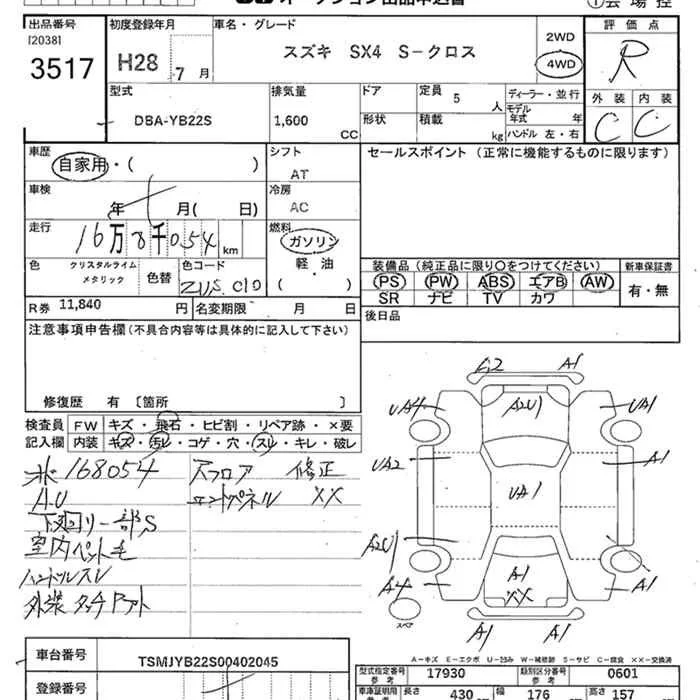 オークション出品申込書
①会場控
出品番号 初度登録年月 車名・グレード 評価点
[2038]
3517 H28 7月 スズキ SX4 S-クロス 2WD 4WD R
型式 排気量 ドア 定員 5人 ディーラー・並行 外装 内装
DBA-YB22S 1,600 CC 形状 積載 kg モデル年式 年 C C
ハンドル 左・右
車歴 シフト セールスポイント (正常に機能するものに限ります)
自家用・( ) AT
車検 冷房
年 月( 日) AC
走行 燃料
16万8千054km ガソリン
色 クリスタルライムメタリック 色替 色コード ZUS C10 軽・油 ( )
装備品 (純正品に限り〇をつけてください) 新車保証書
PS PW ABS エアB AW 有・無
SR ナビ TV カワ
R券 11,840円 名変期限 月 日 後日品
注意事項申告欄(不具合内容等は具体的に記入して下さい)
修復歴 有 〔箇所 〕
検査員 FW キズ・飛石・ヒビ割・リペア跡・×要
記入欄 内装 キズ・汚レ・コゲ・穴・スレ・キレ・破レ
168054 Aフロア 修正
エンドパネル XX
下廻リ一部S
室内ペット毛
ハンドルスレ
外装タッチアット
G2 A1
UA4 A2U1 UA1
UA2 A1
UA1
A2U1
A4 A1 XX A1
スペア A1 A1
A-キズ E-エクボ U-凹み W-補修跡 S-サビ C-腐食 ××-交換済
車台番号 TSMJYB22S00402045
登録番号
型式指定番号 参考 17930 類別区分番号 参考 0601
車庫証明用 長さ 430 幅 176 高さ 157